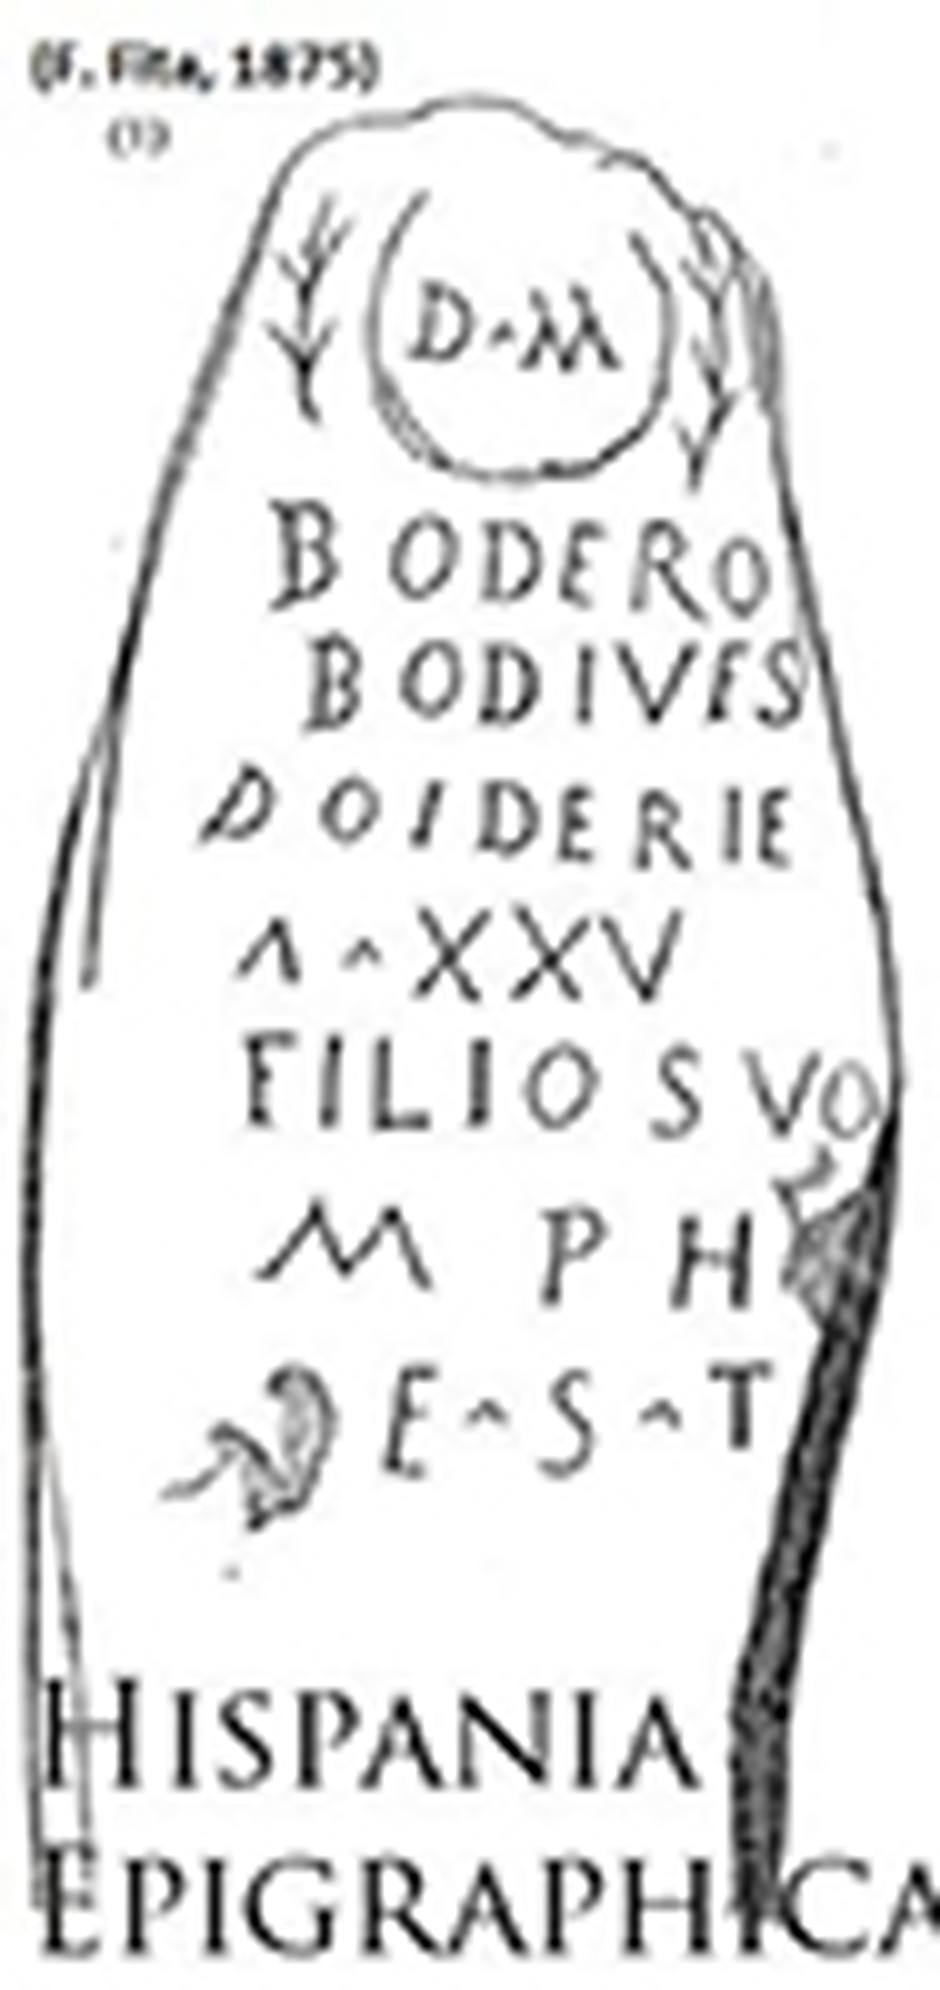 (F. Fita, 1875)
(1)
D^M
BODERO
BODIVES
DOIDERIE
Λ^XXV
FILIO SVO
M P H
E^S^T
HISPANIA
EPIGRAPHICA